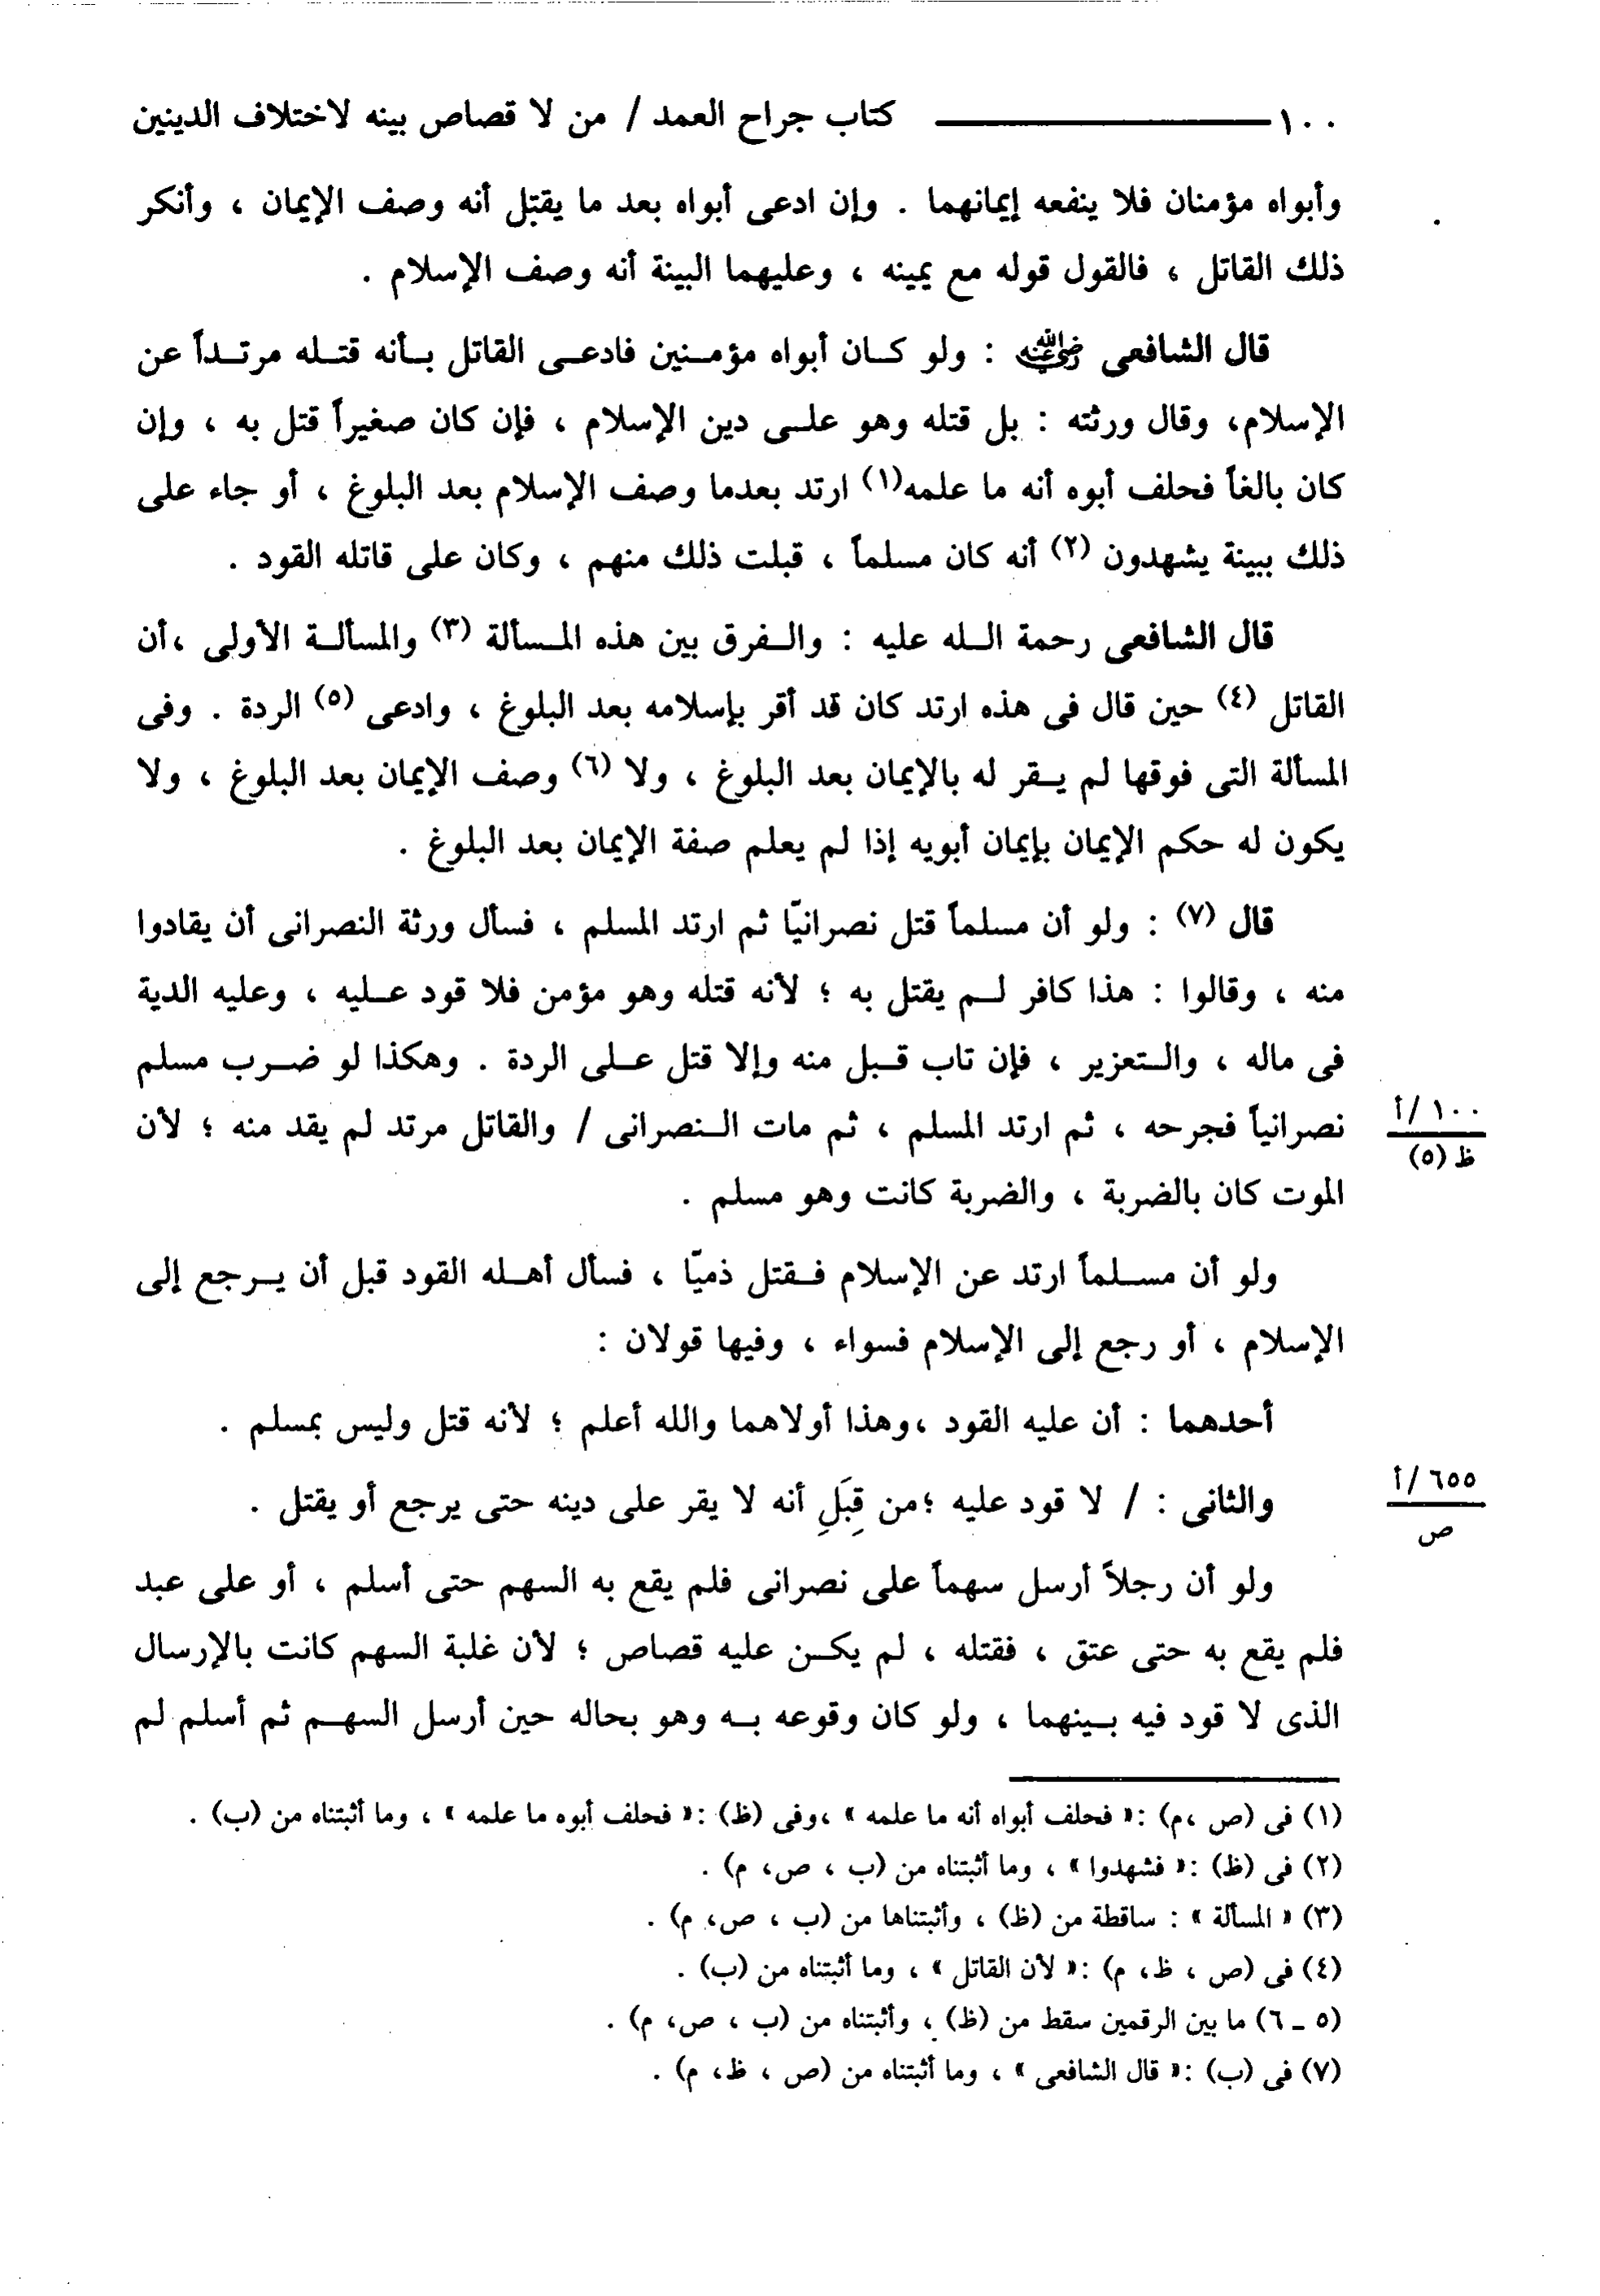 ١٠٠ ــــــــــــــ كتاب جراح العمد / من لا قصاص بينه لاختلاف الدينين
وأبواه مؤمنان فلا ينفعه إيمانهما . وإن ادعى أبواه بعد ما يقتل أنه وصف الإيمان ، وأنكر
ذلك القاتل ، فالقول قوله مع يمينه ، وعليهما البينة أنه وصف الإسلام .
قال الشافعى رضي الله عنه : ولو كــان أبواه مؤمــنين فادعــى القاتل بــأنه قتــله مرتــداً عن
الإسلام، وقال ورثته : بل قتله وهو علــى دين الإسلام ، فإن كان صغيراً قتل به ، وإن
كان بالغاً فحلف أبوه أنه ما علمه(١) ارتد بعدما وصف الإسلام بعد البلوغ ، أو جاء على
ذلك ببينة يشهدون (٢) أنه كان مسلماً ، قبلت ذلك منهم ، وكان على قاتله القود .
قال الشافعى رحمة الــله عليه : والــفرق بين هذه المــسألة (٣) والمسألــة الأولى ،أن
القاتل (٤) حين قال فى هذه ارتد كان قد أقر بإسلامه بعد البلوغ ، وادعى (٥) الردة . وفى
المسألة التى فوقها لم يــقر له بالإيمان بعد البلوغ ، ولا (٦) وصف الإيمان بعد البلوغ ، ولا
يكون له حكم الإيمان بإيمان أبويه إذا لم يعلم صفة الإيمان بعد البلوغ .
قال (٧) : ولو أن مسلماً قتل نصرانيّا ثم ارتد المسلم ، فسأل ورثة النصرانى أن يقادوا
منه ، وقالوا : هذا كافر لــم يقتل به ؛ لأنه قتله وهو مؤمن فلا قود عــليه ، وعليه الدية
فى ماله ، والــتعزير ، فإن تاب قــبل منه وإلا قتل عــلى الردة . وهكذا لو ضــرب مسلم
نصرانياً فجرحه ، ثم ارتد المسلم ، ثم مات الــنصرانى / والقاتل مرتد لم يقد منه ؛ لأن
١٠٠/أ
ظ (٥)
الموت كان بالضربة ، والضربة كانت وهو مسلم .
ولو أن مســلماً ارتد عن الإسلام فــقتل ذميّا ، فسأل أهــله القود قبل أن يــرجع إلى
الإسلام ، أو رجع إلى الإسلام فسواء ، وفيها قولان :
أحدهما : أن عليه القود ،وهذا أولاهما والله أعلم ؛ لأنه قتل وليس بمسلم .
والثانى : / لا قود عليه ؛من قِبَلِ أنه لا يقر على دينه حتى يرجع أو يقتل .
٦٥٥/أ
ص
ولو أن رجلاً أرسل سهماً على نصرانى فلم يقع به السهم حتى أسلم ، أو على عبد
فلم يقع به حتى عتق ، فقتله ، لم يكــن عليه قصاص ؛ لأن غلبة السهم كانت بالإرسال
الذى لا قود فيه بــينهما ، ولو كان وقوعه بــه وهو بحاله حين أرسل السهــم ثم أسلم لم
(١) فى (ص ،م) :« فحلف أبواه أنه ما علمه » ،وفى (ظ) :« فحلف أبوه ما علمه » ، وما أثبتناه من (ب) .
(٢) فى (ظ) :« فشهدوا » ، وما أثبتناه من (ب ، ص، م) .
(٣) « المسألة » : ساقطة من (ظ) ، وأثبتناها من (ب ، ص، م) .
(٤) فى (ص ، ظ، م) :« لأن القاتل » ، وما أثبتناه من (ب) .
(٥ ـ ٦) ما بين الرقمين سقط من (ظ) ، وأثبتناه من (ب ، ص، م) .
(٧) فى (ب) :« قال الشافعى » ، وما أثبتناه من (ص ، ظ، م) .